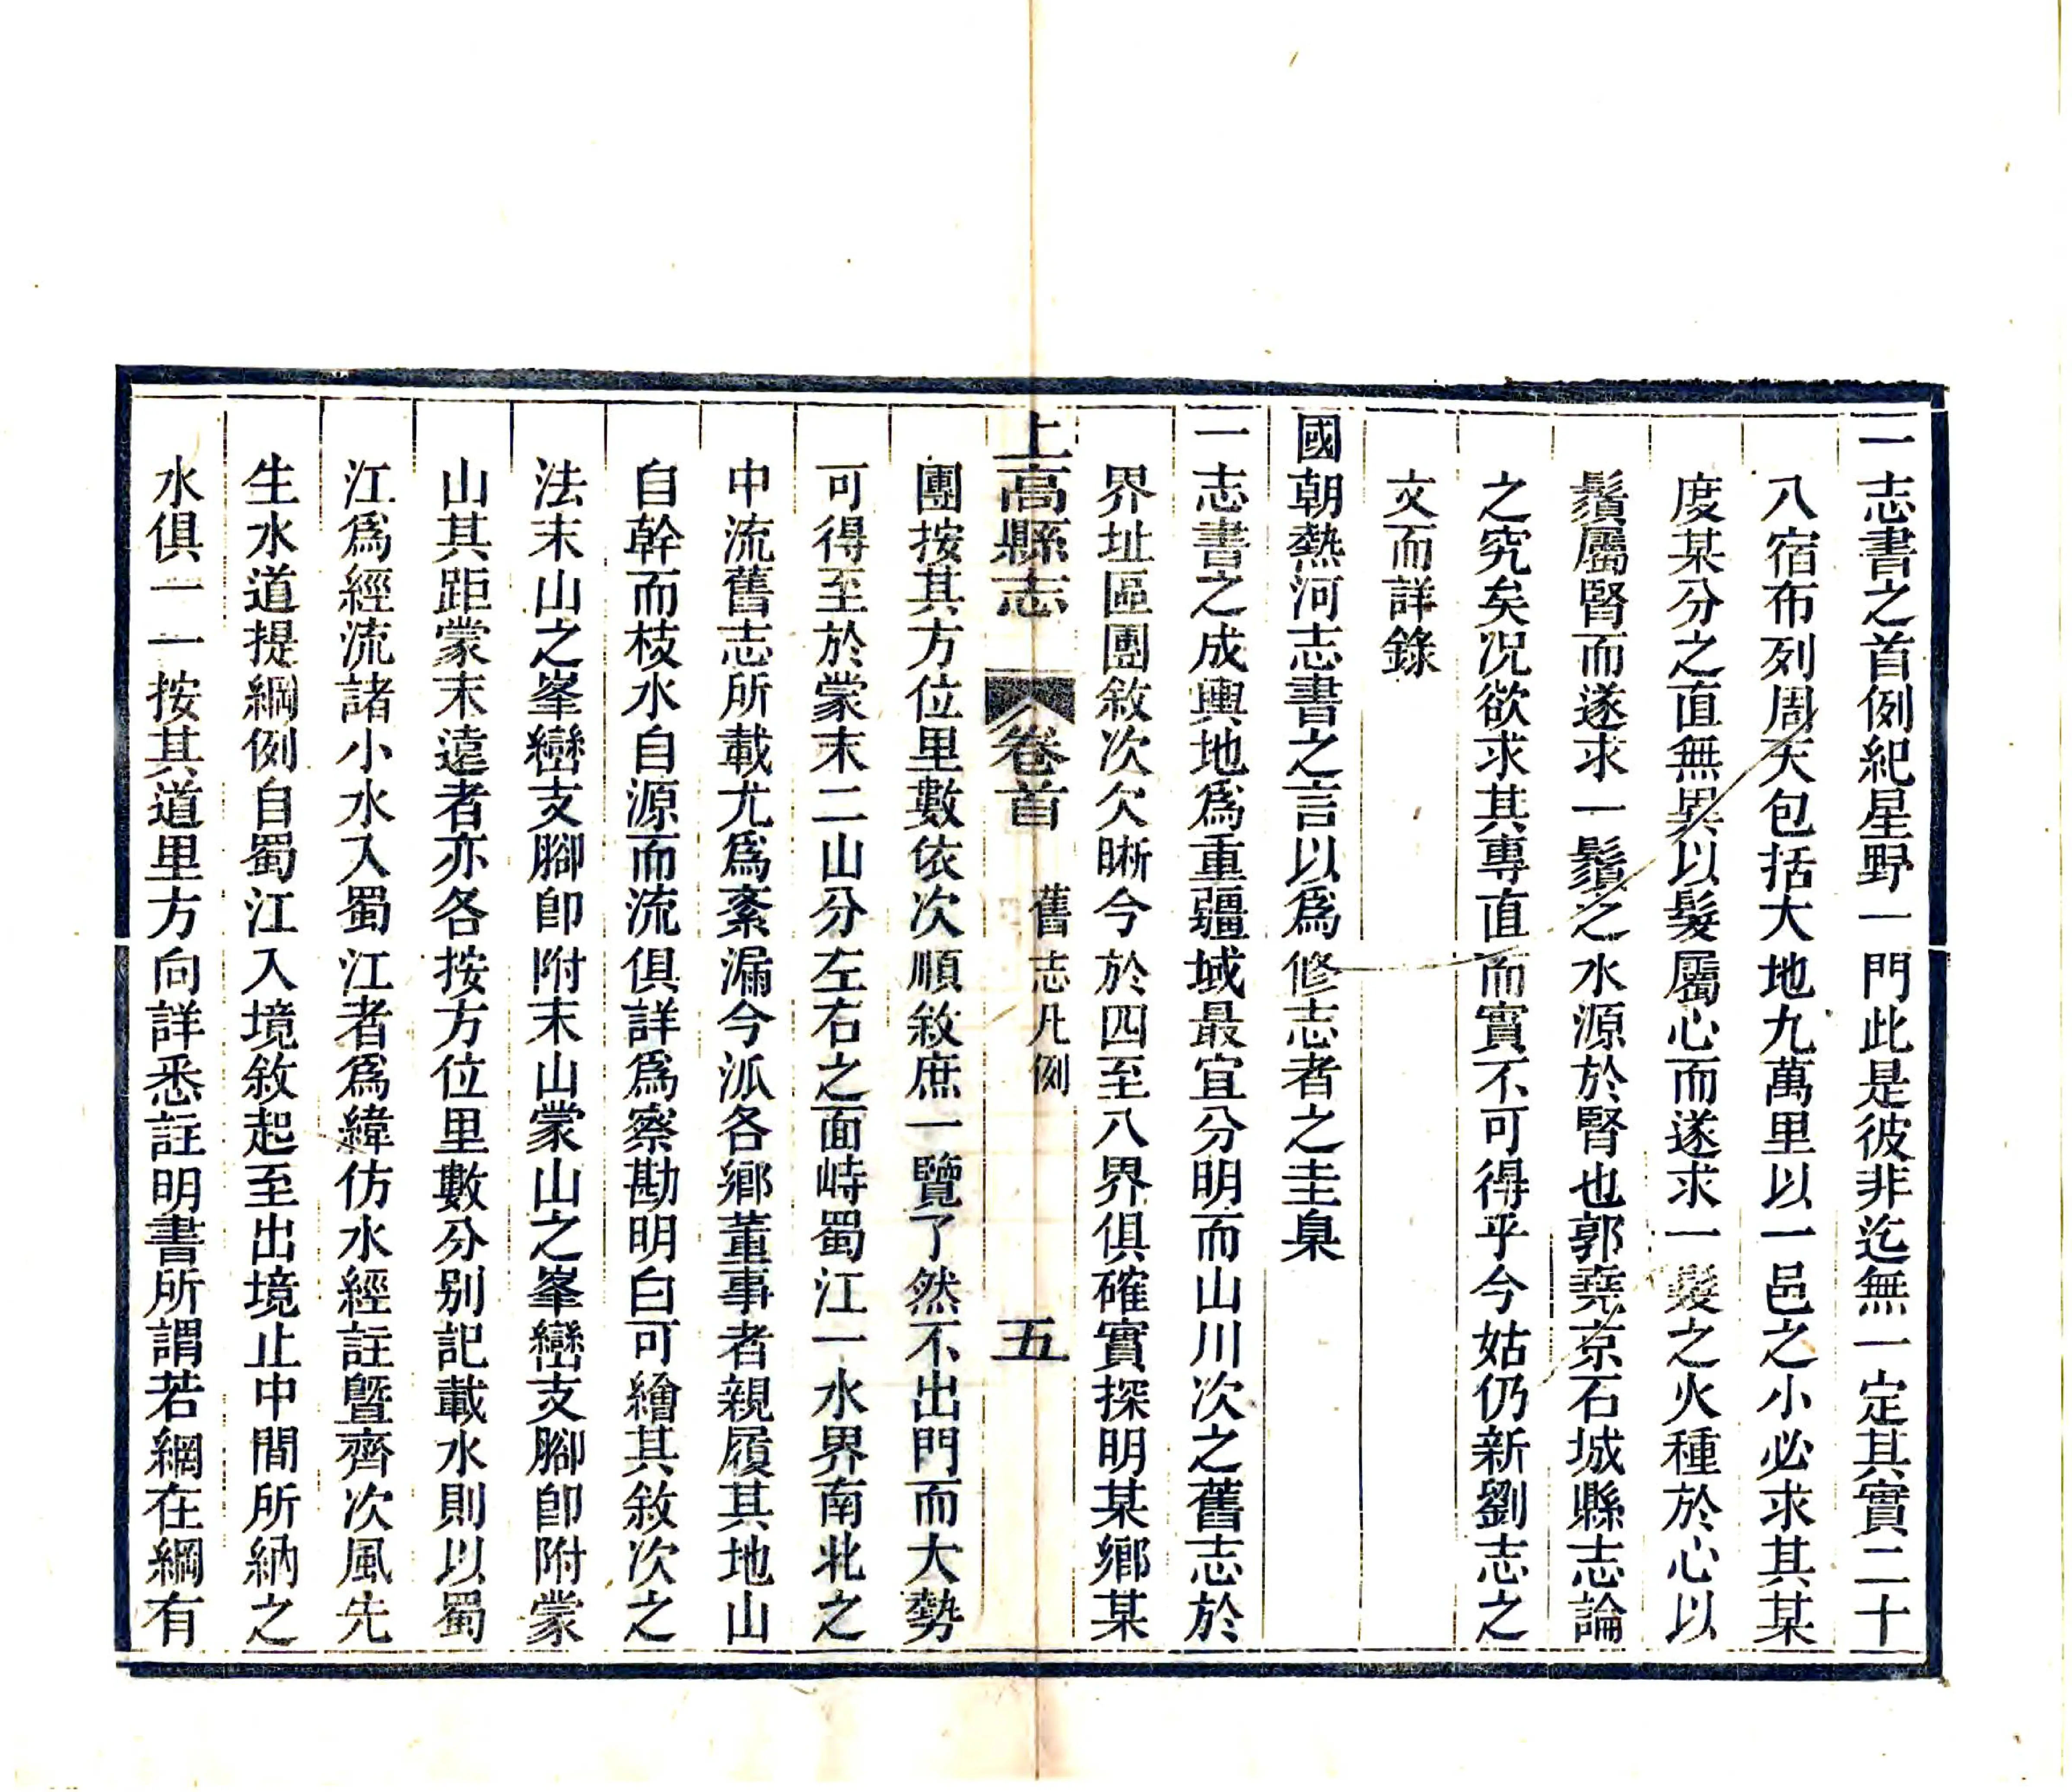 一志書之首例紀星野一門此是彼非迄無一定其實二十
八宿布列周天包括大地九萬里以一邑之小必求其某
度某分之直無異以髮屬心而遂求一髮之火種於心以
鬚屬腎而遂求一鬚之水源於腎也郭堯京石城縣志論
之究矣况欲求其專直而實不可得乎今姑仍新劉志之
文而詳錄
國朝熱河志書之言以爲修志者之圭臬
一志書之成輿地爲重疆域最宜分明而山川次之舊志於
界址區團敘次欠晰今於四至八界俱確實探明某鄉某
上高縣志 卷首 舊志凡例 五
團按其方位里數依次順敘庶一覽了然不出門而大勢
可得至於蒙末二山分左右之面峙蜀江一水界南北之
中流舊志所載尤爲紊漏今派各鄉董事者親履其地山
自幹而枝水自源而流俱詳爲察勘明白可繪其敘次之
法末山之峯巒支腳卽附末山蒙山之峯巒支腳卽附蒙
山其距蒙末遠者亦各按方位里數分别記載水則以蜀
江爲經流諸小水入蜀江者爲緯仿水經註曁齊次風先
生水道提綱例自蜀江入境敘起至出境止中間所納之
水俱一一按其道里方向詳悉註明書所謂若網在綱有